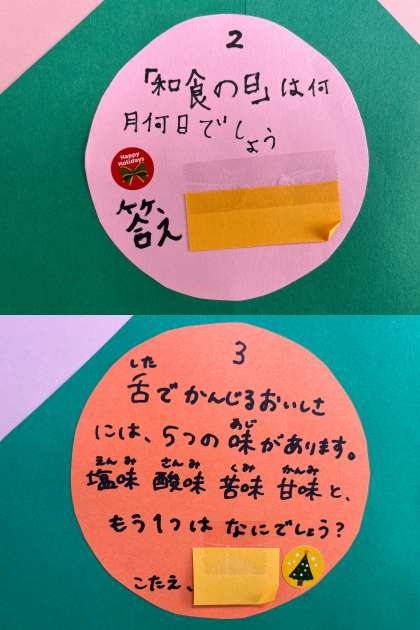 2
「和食の日」は何
月何日でしょう
Happy
Holidays
答え
3
した
舌でかんじるおいしさ
あじ
には、5つの味があります。
えんみ さんみ くみ かんみ
塩味 酸味 苦味 甘味と、
もう1つは なにでしょう?
こたえ、